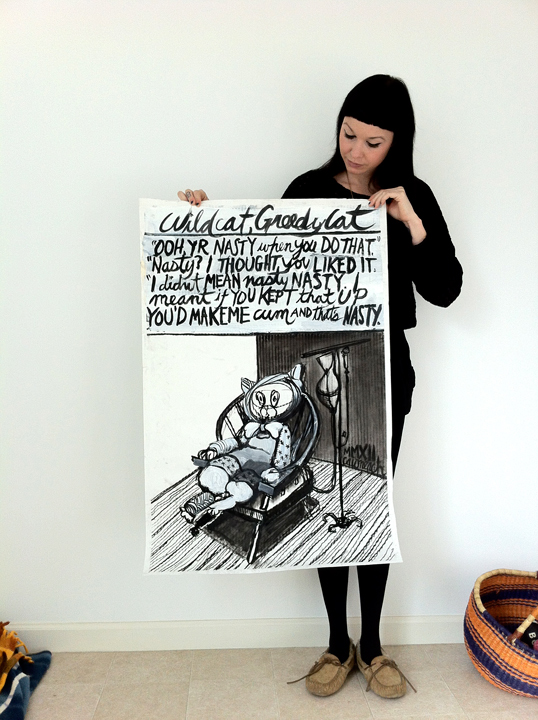 Wildcat, Greedy Cat
"OOH, YR NASTY when you DO THAT"
"Nasty? I THOUGHT you LIKED IT.
"I didn't MEAN nasty NASTY. I
meant if YOU KEPT that UP
YOU'D MAKE ME cum AND that's NASTY.
MMXII